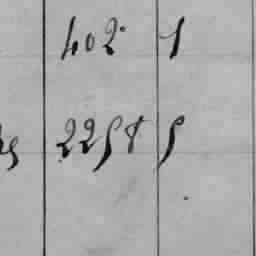 402 5
2258 5